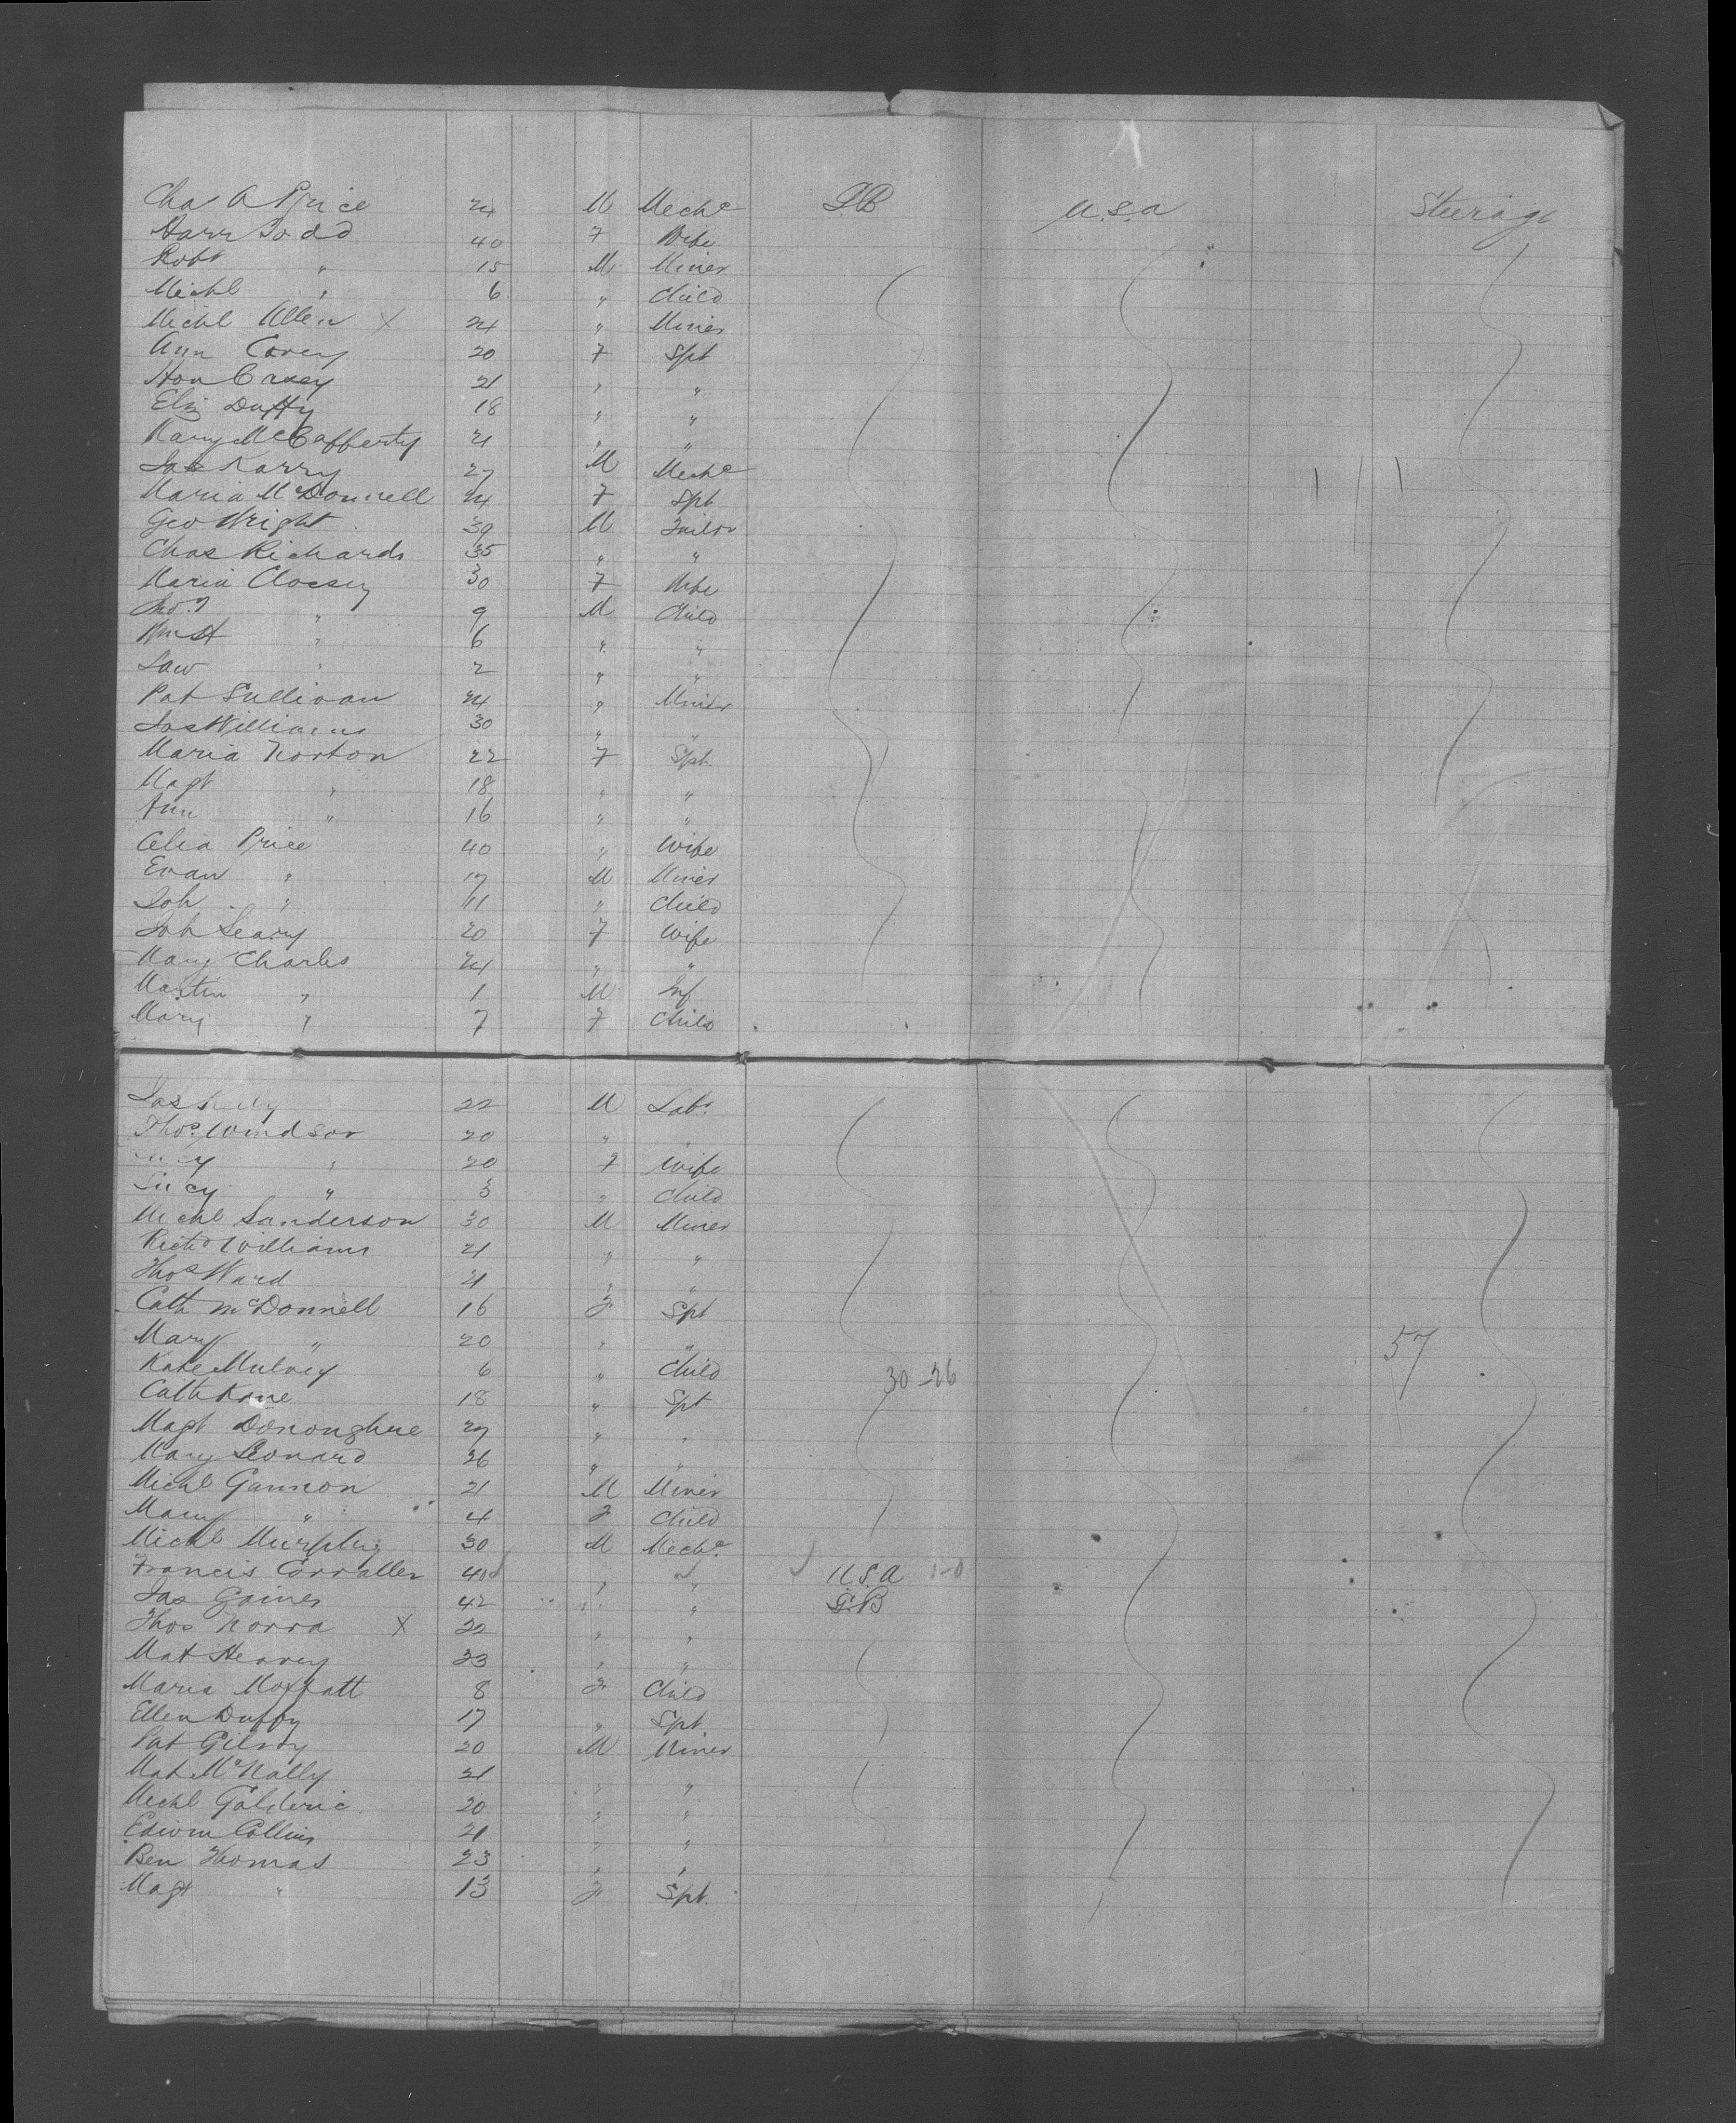 Chas A Price 24 M Mechc G.B U.S.A Steerage
Harr Todd 40 F Wife
Robt " 15 M Miner
Michl " 6 " Child
Michl Allen X 24 " Miner
Ann Corey 20 F Spt
Hon Casey 21 " "
Eliz Duffy 18 " "
Mary McCafferty 21 " "
Jas Karry 27 M Mechc
Maria McDonnell 24 F Spt
Geo Wright 39 M Tailor
Chas Richards 35 " "
Maria Clossey 30 F Wife
" 9 M Child
Wm H " 6 " "
Law " 2 " "
Pat Sullivan 24 " Miner
Jas Williams 30 " "
Maria Norton 22 F Spt.
Magt " 18 " "
Ann " 16 " "
Celia Price 40 " Wife
Evan " 17 M Miner
Joh " 11 " Child
Joh Leary 20 F Wife
Mary Charles 24 " "
Martin " 1 M Inf
Mary " 7 F Child
Jas 22 M Labr
Thos. Windsor 20 " "
" 20 F Wife
Lucy " 3 " Child
Michl Sanderson 30 M Miner
Richd Williams 21 " "
Thos Ward 21 " "
Cath McDonnell 16 F Spt
Mary " 20 " " 57
Kate Mulvey 6 " Child 30-26
Cath Kane 18 " Spt
Magt Donoughue 27 " "
Mary Leonard 26 " "
Michl Gannon 21 M Miner
Mary " 4 F Child
Michl Murphy 30 M Mechc.
Francis Corraller 40 " " U.S.A 1-0
Jas Gaines 42 " " G.B
Thos Norra X 22 " "
Mat Heavey 23 " "
Maria Moffatt 8 F Child
Ellen Duffy 17 " Spt.
Pat Gilroy 20 M Miner
Mat McNally 21 " "
Michl Galderic 20 " "
Edwin Collins 21 " "
Ben Thomas 23 " "
Magt " 13 F Spt.